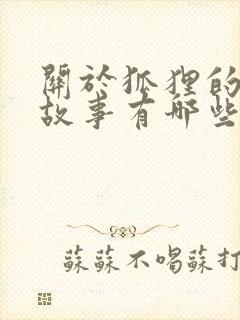 關於狐狸的
故事有哪些
蘇蘇不唱蘇打